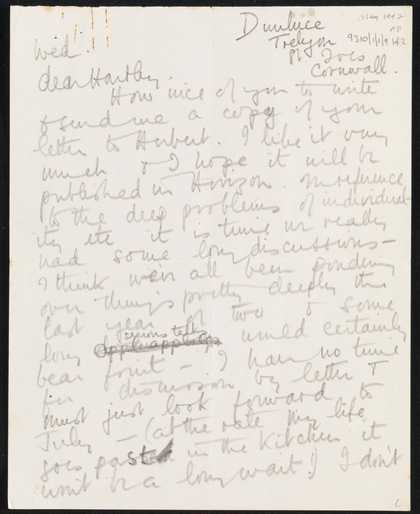 Dunluce
Trelyon
St Ives
Cornwall.
May 1942
9310/1/1/9 142
Wed.
dear Hartley.
How nice of you to write
& send me a copy of your
letter to Herbert. I like it very
much & I hope it will be
published in Horizon. In reference
to the deep problems of individual-
ity etc it is time we really
had some long discussions –
I think we've all been pondering
over things pretty deeply this
last year or two & some
long serious talks would certainly
bear fruit – I have no time
for discussion by letter I
must just look forward to
July – (at the rate my life
goes past in the kitchen it
won't be a long wait!) I don't